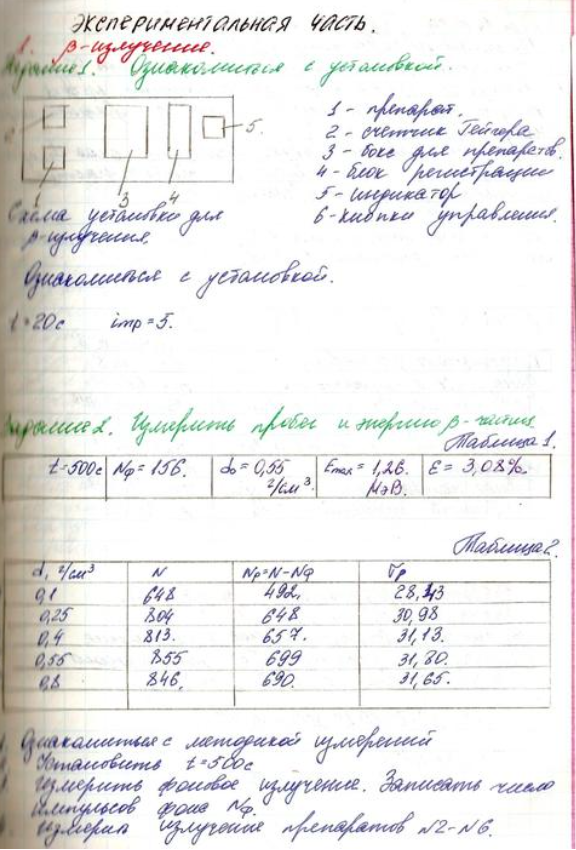 Экспериментальная часть.
1. β-излучение.
Задание 1. Ознакомиться с установкой.
5.
1 3 4
1 - препарат.
2 - счетчик Гейгера
3 - бокс для препаратов.
4 - блок регистрации
5 - индикатор
6 - кнопки управления.
Схема установки для
β-излучения.
Ознакомиться с установкой.
t = 20 с imp = 5.
Задание 2. Измерить пробег и энергию β-частиц
Таблица 1.
t = 500 с Nф = 156. d₀ = 0,55 г/см³ Emax = 1,26. МэВ. E = 3,08%.
Таблица 2.
d, г/см³ N Nр = N - Nф σр
0,1 648 492. 28,43
0,25 804 648 30,98
0,4 813. 657. 31,13.
0,55 855 699 31,80.
0,8 846. 690. 31,65.
Ознакомиться с методикой измерений
Установить t = 500 с
Измерить фоновое излучение. Записать число
импульсов фона Nф.
Измерил излучение препаратов №2-№6.